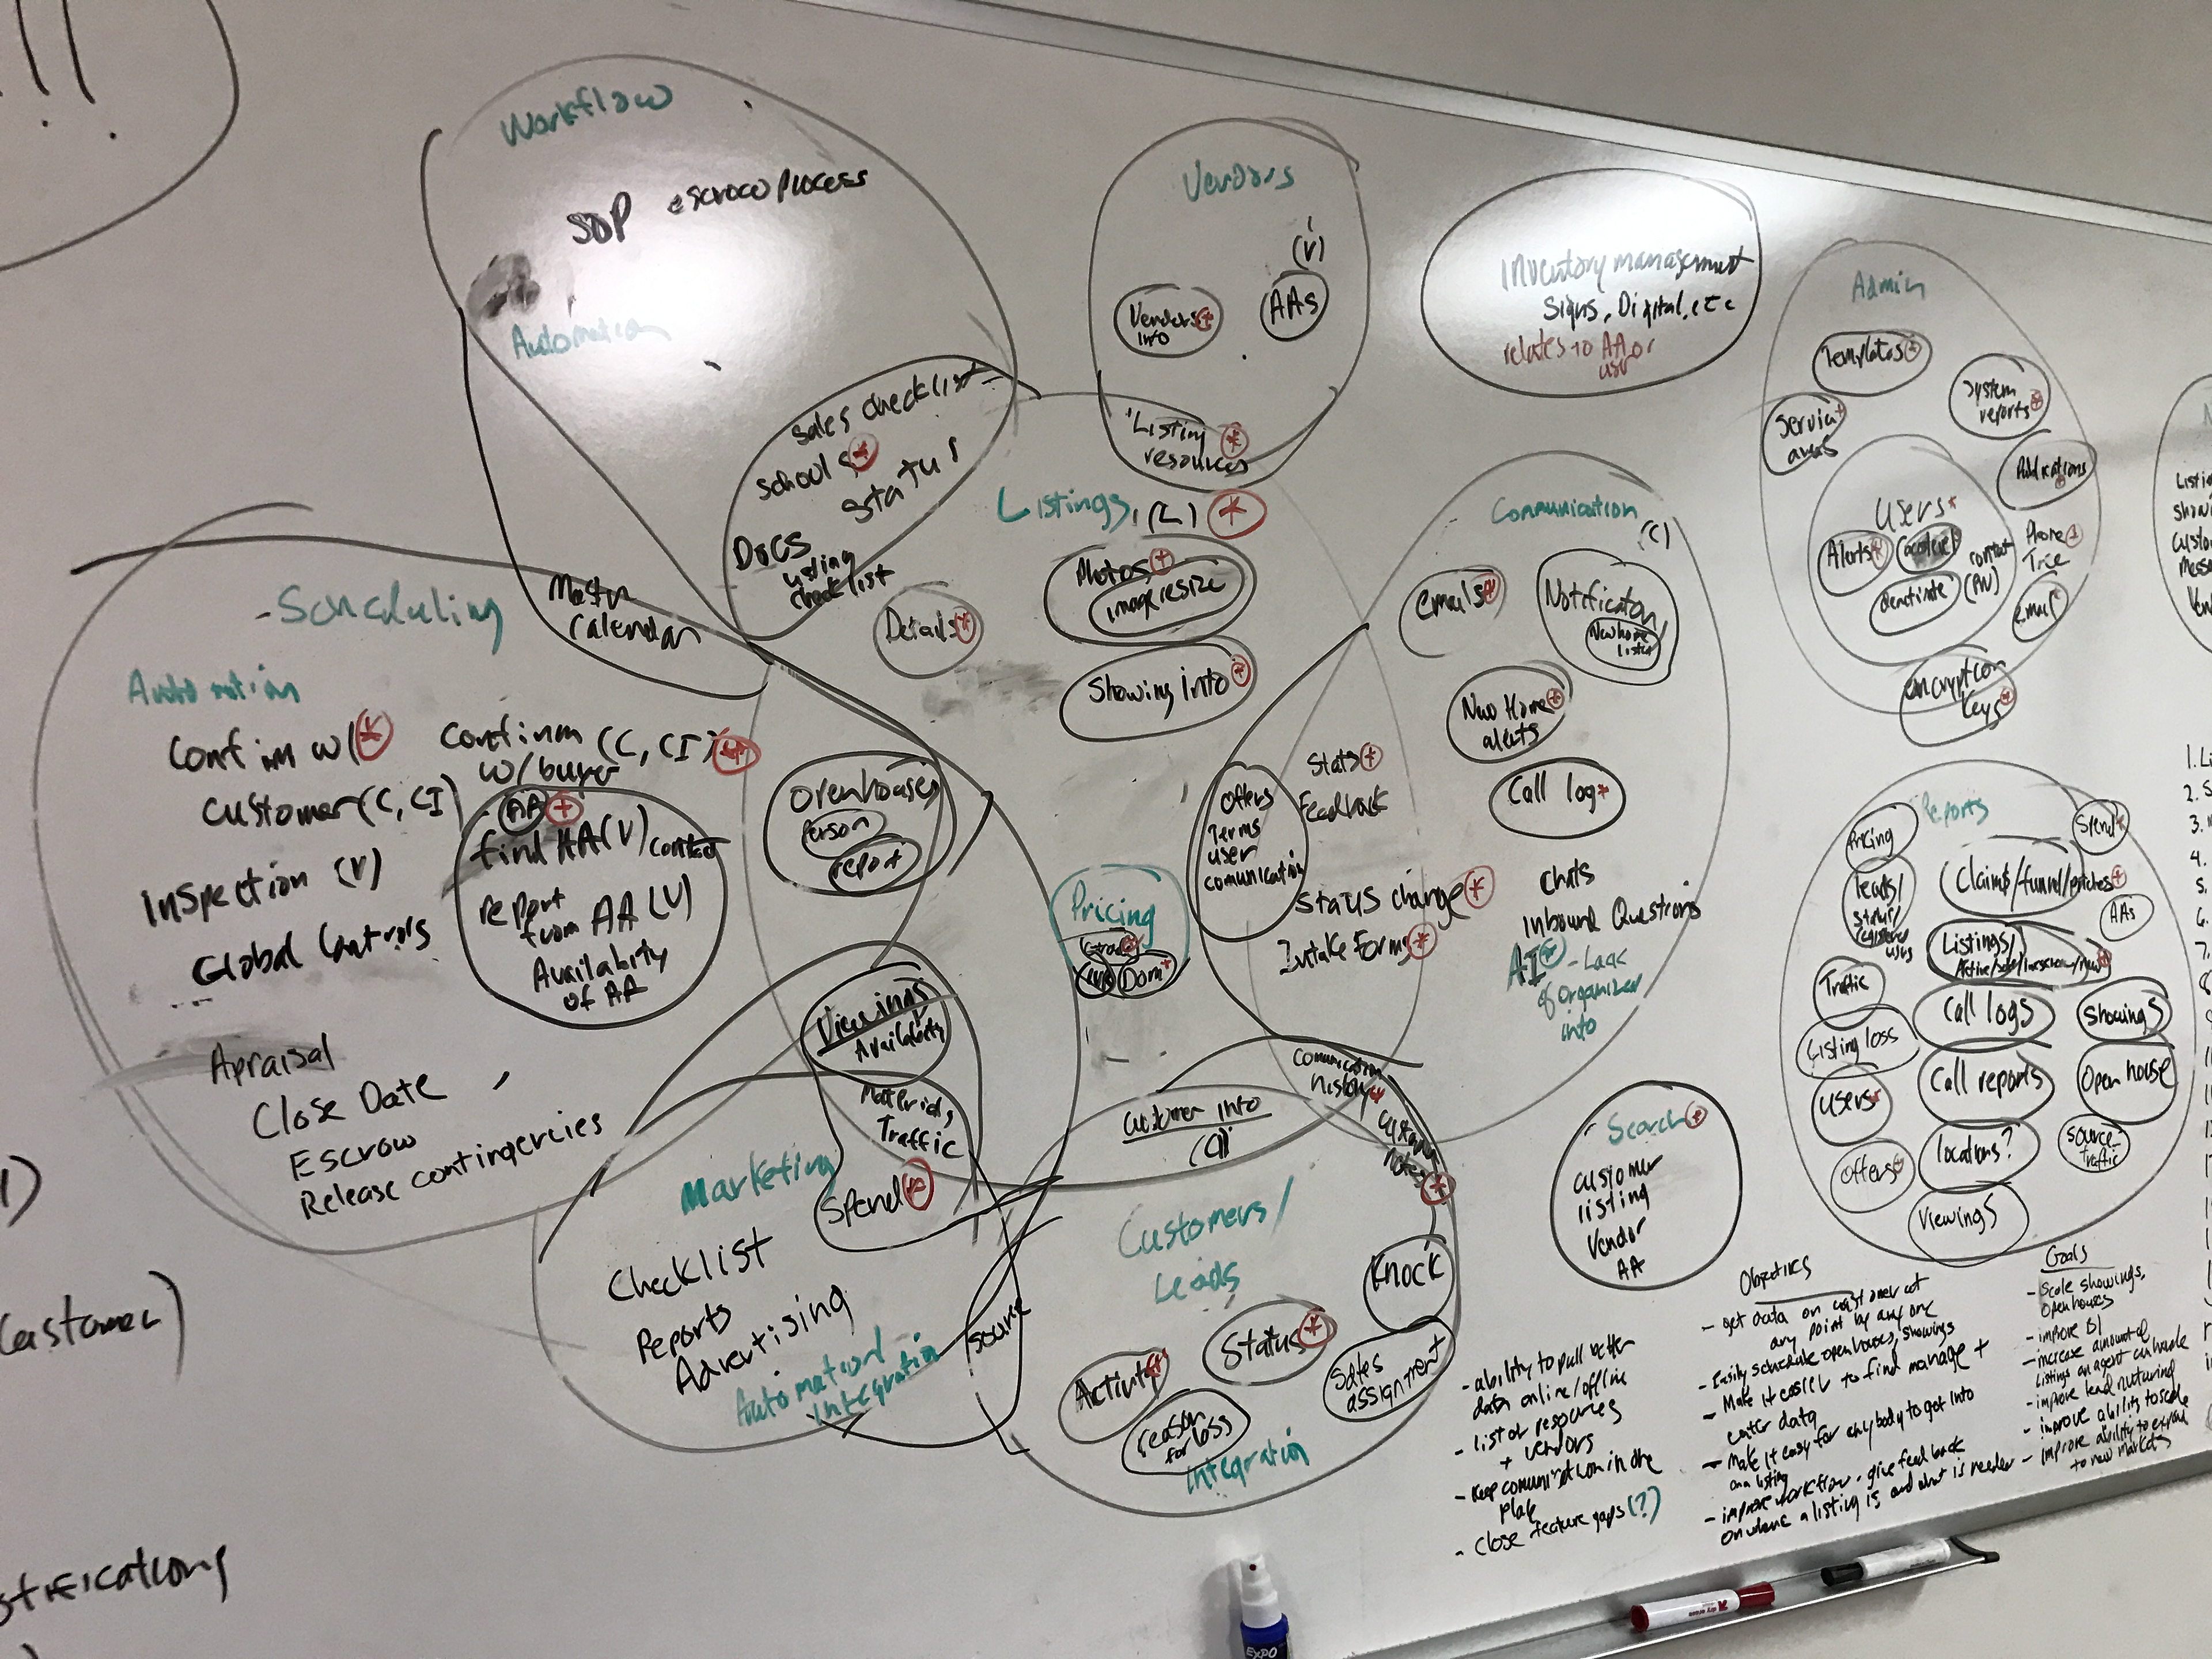 !!
Workflow
SOP
escrow process
Automation
sales checklist
schools *
status
Docs
listing
checklist
Vendors
(V)
Vendors +
info
AAs
Listing *
resources
Inventory management
Signs, Digital, etc
relates to AA or
usr
Admin
Templates +
System
reports +
Service +
areas
Publications
+
Users *
Alerts *
contact
(AV)
deactivate
Phone +
Tree
email *
encryption
keys *
Scheduling
Master
calendar
Automation
Confim w/ *
customer (C, CI)
confirm (C, CI) *
w/ buyer
AA +
find AA (V) contact
report
from AA (V)
Availabity
of AA
Inspection (V)
Global Controls
Appraisal
Close Date
Escrow
Release contingencies
Listings, (L) *
Details *
Photos +
image resize
Showing info *
Openhouses
Person
report
Viewings
Availabity
Pricing
Dom *
Communication
(C)
emails *
Notification
New home
listed
New Home *
alerts
Call log *
Stats +
Feedback
Offers
Terms
user
comunication
Status change *
Intake Forms *
Chats
Inbound Questions
AI
- Lack
of organized
info
Marketing
Materials,
Traffic
Spend *
Checklist
Reports
Advertising
Automation
integration
source
Customers/
Leads
Customer info
Comunication
history *
customer
notes
*
Knock
Status *
Activity *
Sales
assignment
reason
for loss
integration
Search *
customer
listing
Vendor
AA
Reports
Pricing
Spend *
leads/
status/
registered
users
Claims/funnel/pitches +
AAs
Listings/
Traffic
Call logs
Showings
Listing loss
Call reports
Open house
Users *
locations?
source
traffic
Offers
Viewings
- ability to pull better
data online/offline
- list of resources
+ vendors
- Keep comunication in one
place
- close feature gaps (?)
Objectives
- get data on customer at
any point by anyone
- Easily schedule openhouses, showings
- Make it easier to find manage +
enter data
- Make it easy for anybody to get info
on a listing
- improve workflow - give feedback
on where a listing is and what is needed
Goals
- Scale showings,
openhouses
- improve BI
- increase amount of
listings an agent can handle
- improve lead nuturing
- improve ability to scale
- improve ability to expand
to new markets
1. Li
2. S
3.
4.
5.
6.
7.
8
Customer)
EXPO